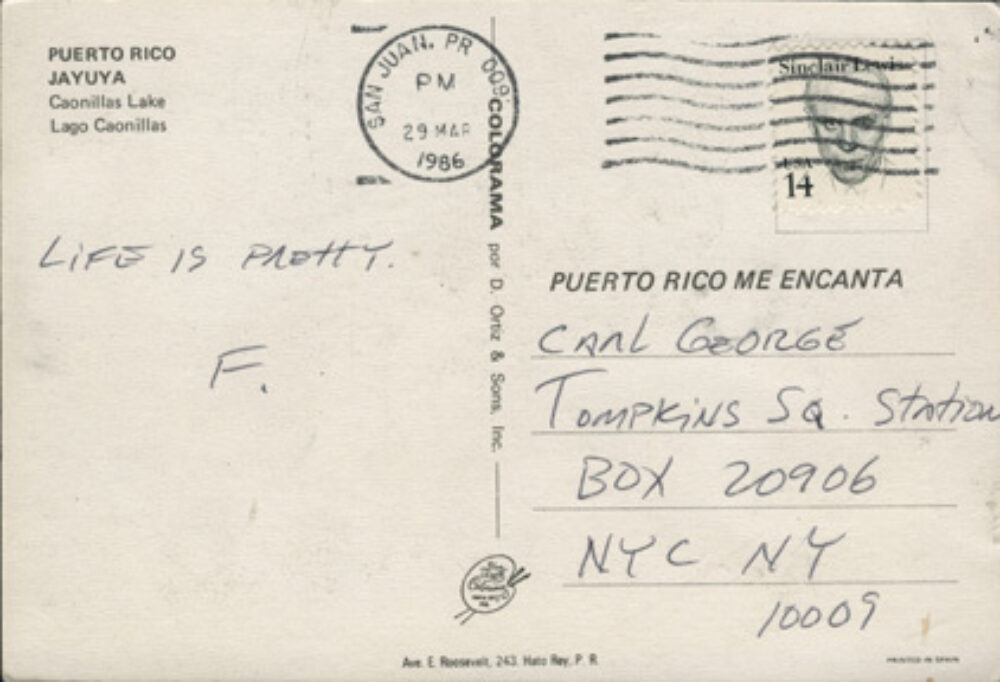 PUERTO RICO
JAYUYA
Caonillas Lake
Lago Caonillas
SAN JUAN, PR 009
PM
29 MAR
1986
Sinclair Lewis
USA
14
LIFE IS PRETTY.
F.
COLORAMA por D. Ortiz & Sons, Inc.
PUERTO RICO ME ENCANTA
CARL GEORGE
TOMPKINS SQ. Station
BOX 20906
NYC NY
10009
Ave. E. Roosevelt, 243. Hato Rey, P. R.
PRINTED IN SPAIN